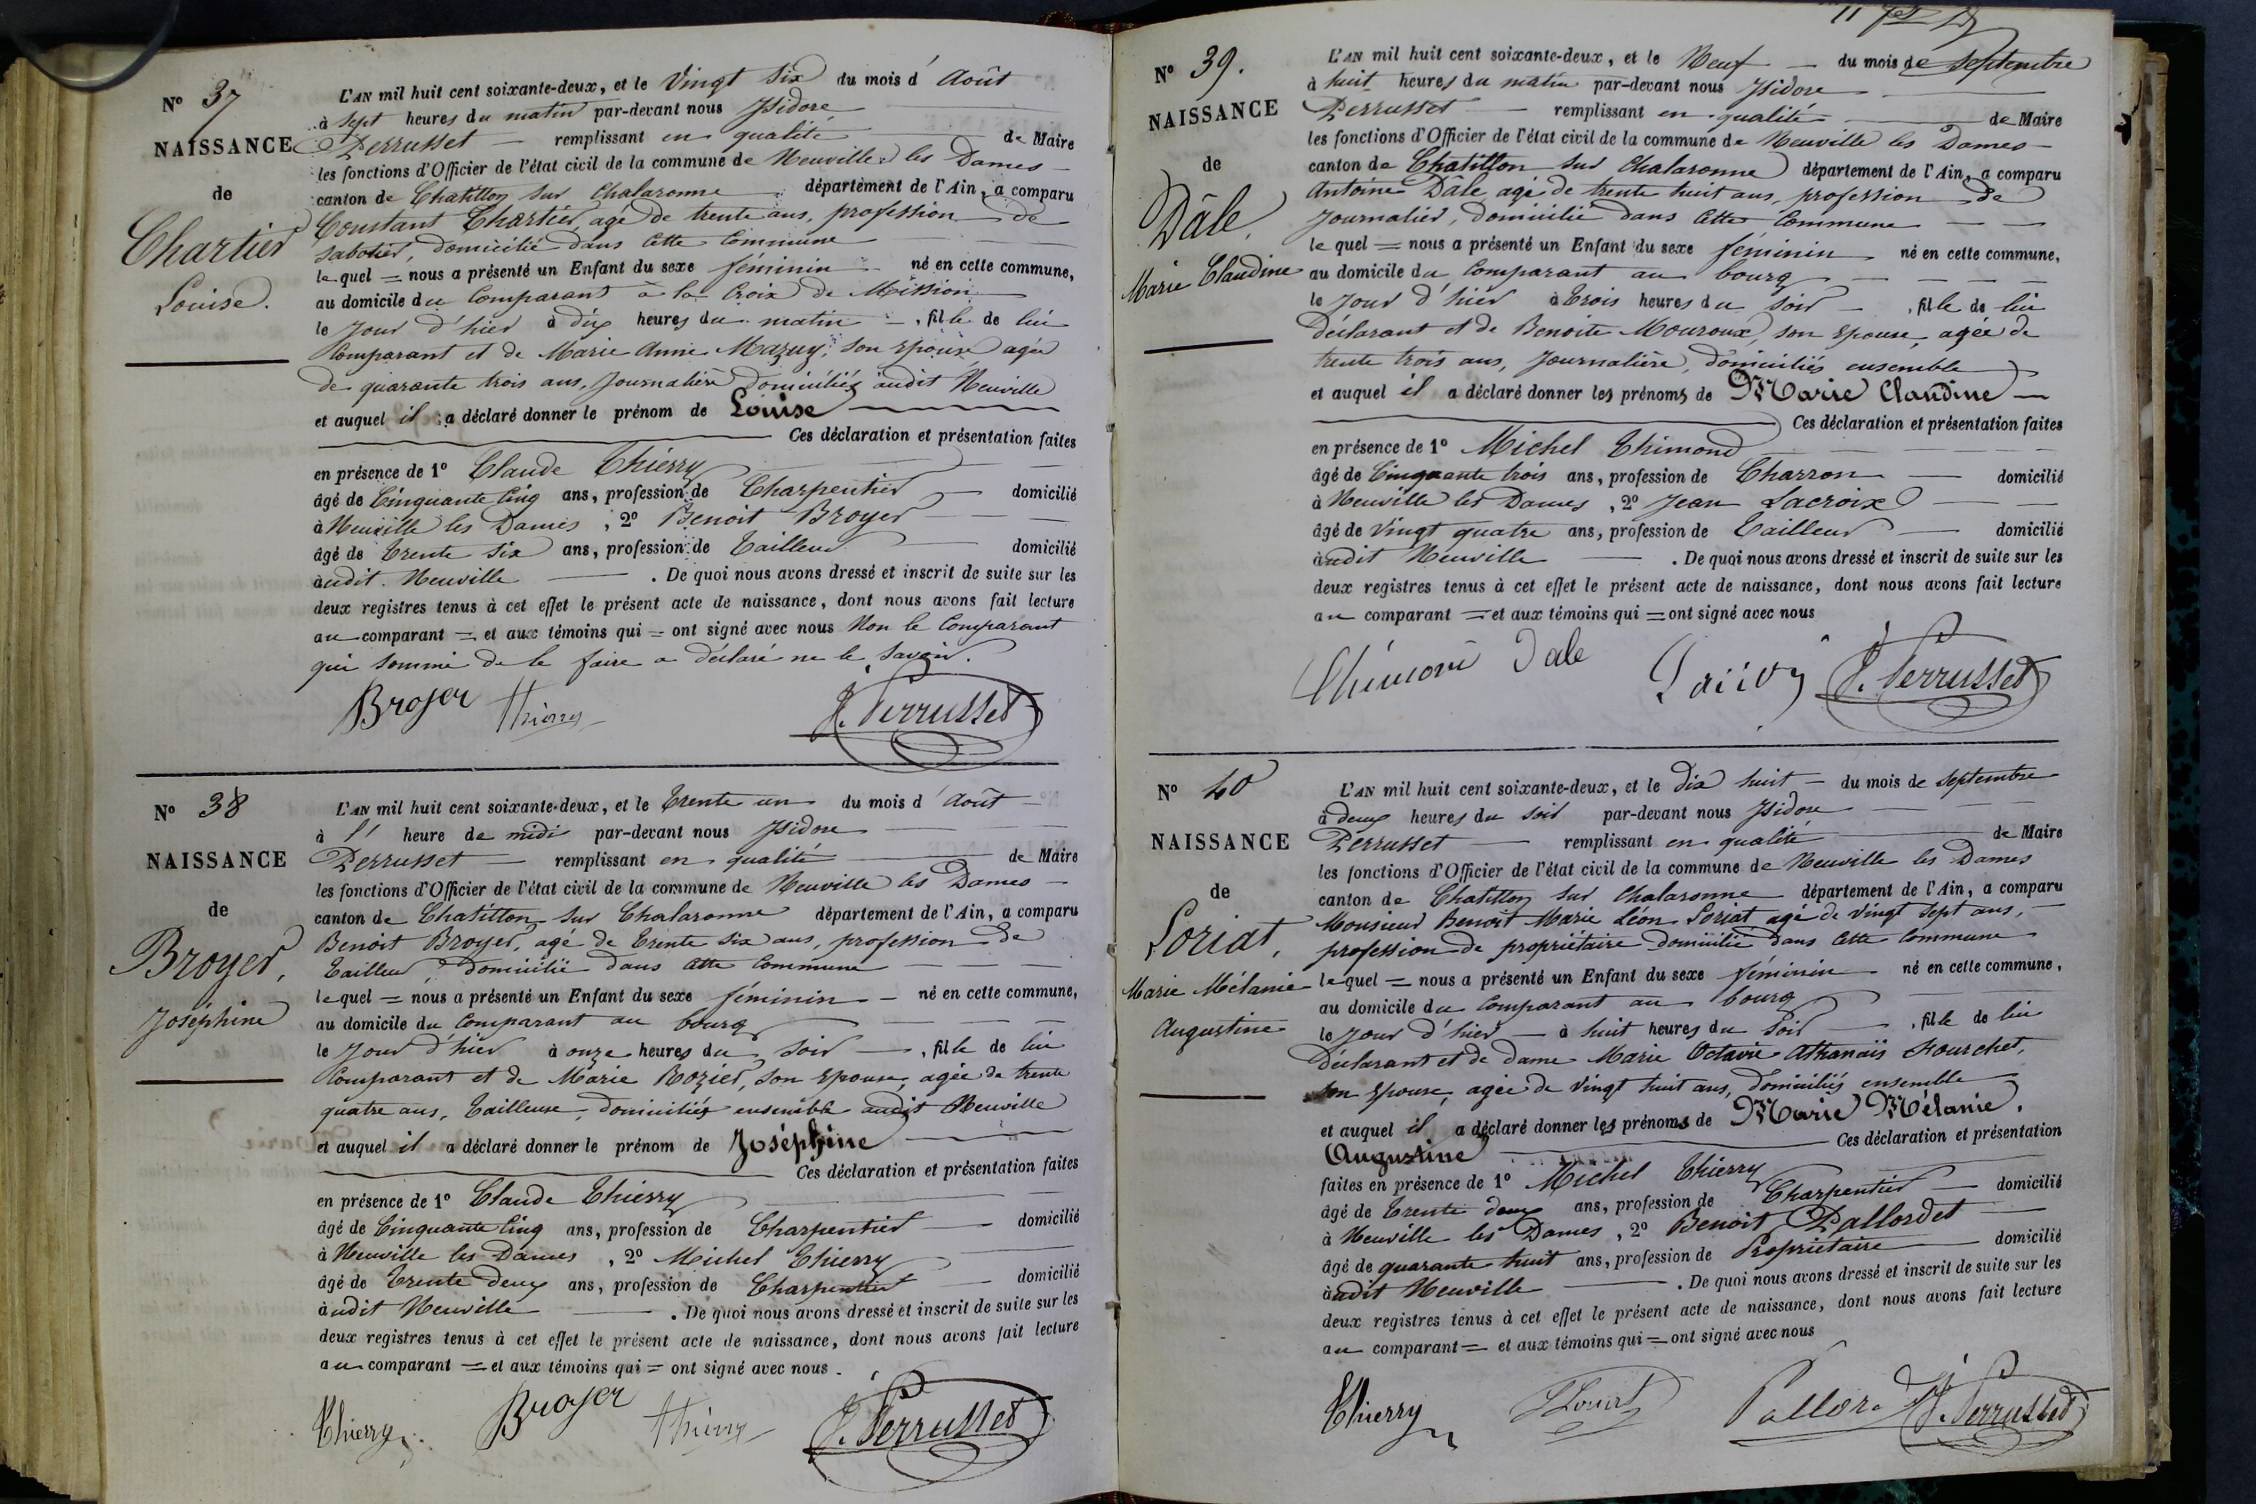 N° 37
NAISSANCE
de
Chartier
Louise.
L'AN mil huit cent soixante-deux, et le Vingt six du mois d'Août
à sept heures du matin par-devant nous Isidore
Perrusset remplissant en qualité de Maire
les fonctions d'Officier de l'état civil de la commune de Neuville les Dames
canton de Chatillon sur Chalaronne département de l'Ain, a comparu
Constant Chartier, agé de trente ans, profession de
sabotier, domicilié dans cette Commune
lequel = nous a présenté un Enfant du sexe féminin né en cette commune,
au domicile du Comparant à la Croix de Mission
le jour d'hier à dix heures du matin, fille de lui
Comparant et de Marie Anne Mazuy, son épouse agée
de quarante trois ans, Journalière Domiciliés audit Neuville
et auquel il a déclaré donner le prénom de Louise
Ces déclaration et présentation faites
en présence de 1° Claude Thierry
âgé de Cinquante Cinq ans, profession de Charpentier domicilié
à Neuville les Dames, 2° Benoit Broyer
âgé de Trente six ans, profession de Tailleur domicilié
audit Neuville. De quoi nous avons dressé et inscrit de suite sur les
deux registres tenus à cet effet le présent acte de naissance, dont nous avons fait lecture
au comparant = et aux témoins qui = ont signé avec nous Non le Comparant
qui sommé de le faire a déclaré ne le savoir.
Broyer Thierry J. Perrusset
N° 38
NAISSANCE
de
Broyer,
Joséphine
L'AN mil huit cent soixante-deux, et le Trente un du mois d'Août
à l' heure de midi par-devant nous Isidore
Perrusset remplissant en qualité de Maire
les fonctions d'Officier de l'état civil de la commune de Neuville les Dames
canton de Chatillon sur Chalaronne département de l'Ain, a comparu
Benoit Broyer, agé de Trente six ans, profession de
Tailleur, domicilié dans cette Commune
lequel = nous a présenté un Enfant du sexe féminin né en cette commune,
au domicile du Comparant au bourg
le jour d'hier à onze heures du soir, fille de lui
Comparant et de Marie Rozier, son épouse, agée de trente
quatre ans, Tailleuse, domiciliés ensemble audit Neuville
et auquel il a déclaré donner le prénom de Joséphine
Ces déclaration et présentation faites
en présence de 1° Claude Thierry
âgé de Cinquante Cinq ans, profession de Charpentier domicilié
à Neuville les Dames, 2° Michel Thierry
âgé de Trente deux ans, profession de Charpentier domicilié
audit Neuville. De quoi nous avons dressé et inscrit de suite sur les
deux registres tenus à cet effet le présent acte de naissance, dont nous avons fait lecture
au comparant = et aux témoins qui = ont signé avec nous.
Thierry Broyer Thierry J. Perrusset
N° 39.
NAISSANCE
de
Dâle,
Marie Claudine
L'AN mil huit cent soixante-deux, et le Neuf du mois de Septembre
à huit heures du matin par-devant nous Isidore
Perrusset remplissant en qualité de Maire
les fonctions d'Officier de l'état civil de la commune de Neuville les Dames
canton de Chatillon sur Chalaronne département de l'Ain, a comparu
Antoine Dâle, agé de trente huit ans, profession de
Journalier, domicilié dans cette Commune
lequel = nous a présenté un Enfant du sexe féminin né en cette commune,
au domicile du Comparant au bourg
le jour d'hier à trois heures du soir, fille de lui
Déclarant et de Benoite Mouroux, son épouse, agée de
trente trois ans, Journalière, domiciliés ensemble
et auquel il a déclaré donner les prénoms de Marie Claudine
Ces déclaration et présentation faites
en présence de 1° Michel Thimond
âgé de Cinquante trois ans, profession de Charron domicilié
à Neuville les Dames, 2° Jean Lacroix
âgé de Vingt quatre ans, profession de Tailleur domicilié
audit Neuville. De quoi nous avons dressé et inscrit de suite sur les
deux registres tenus à cet effet le présent acte de naissance, dont nous avons fait lecture
au comparant = et aux témoins qui = ont signé avec nous
Dale J. Perrusset
N° 40
NAISSANCE
de
Loriat,
Marie Mélanie
Augustine
L'AN mil huit cent soixante-deux, et le dix huit du mois de Septembre
à deux heures du soir par-devant nous Isidore
Perrusset remplissant en qualité de Maire
les fonctions d'Officier de l'état civil de la commune de Neuville les Dames
canton de Chatillon sur Chalaronne département de l'Ain, a comparu
Monsieur Benoit Marie Léon Loriat agé de Vingt sept ans,
profession de propriétaire domicilié dans cette Commune
lequel = nous a présenté un Enfant du sexe féminin né en cette commune,
au domicile du Comparant au bourg
le jour d'hier à huit heures du soir, fille de lui
Déclarant et de dame Marie Octavie Athanaïs Fourchet,
son épouse, agée de Vingt huit ans, domiciliés ensemble
et auquel il a déclaré donner les prénoms de Marie Mélanie,
Augustine Ces déclaration et présentation
faites en présence de 1° Michel Thierry
âgé de Trente deux ans, profession de Charpentier domicilié
à Neuville les Dames, 2° Benoit Pallordet
âgé de quarante huit ans, profession de Propriétaire domicilié
audit Neuville. De quoi nous avons dressé et inscrit de suite sur les
deux registres tenus à cet effet le présent acte de naissance, dont nous avons fait lecture
au comparant = et aux témoins qui = ont signé avec nous
Thierry J. Perrusset